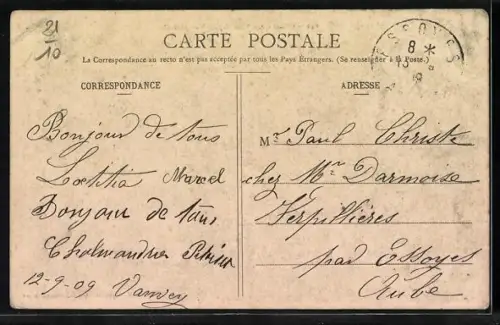 21
10
CARTE POSTALE
La Correspondance au recto n'est pas acceptée par tous les Pays Étrangers. (Se renseigner à la Poste.)
CORRESPONDANCE
ADRESSE
ESSOYES
8 *
Bonjour de tous
Lætitia Marcel
Bonjour de tous
12-9-09 Vanvey
Mr Paul Christe
chez Mr Darmoise
Verpillières
par Essoyes
Aube